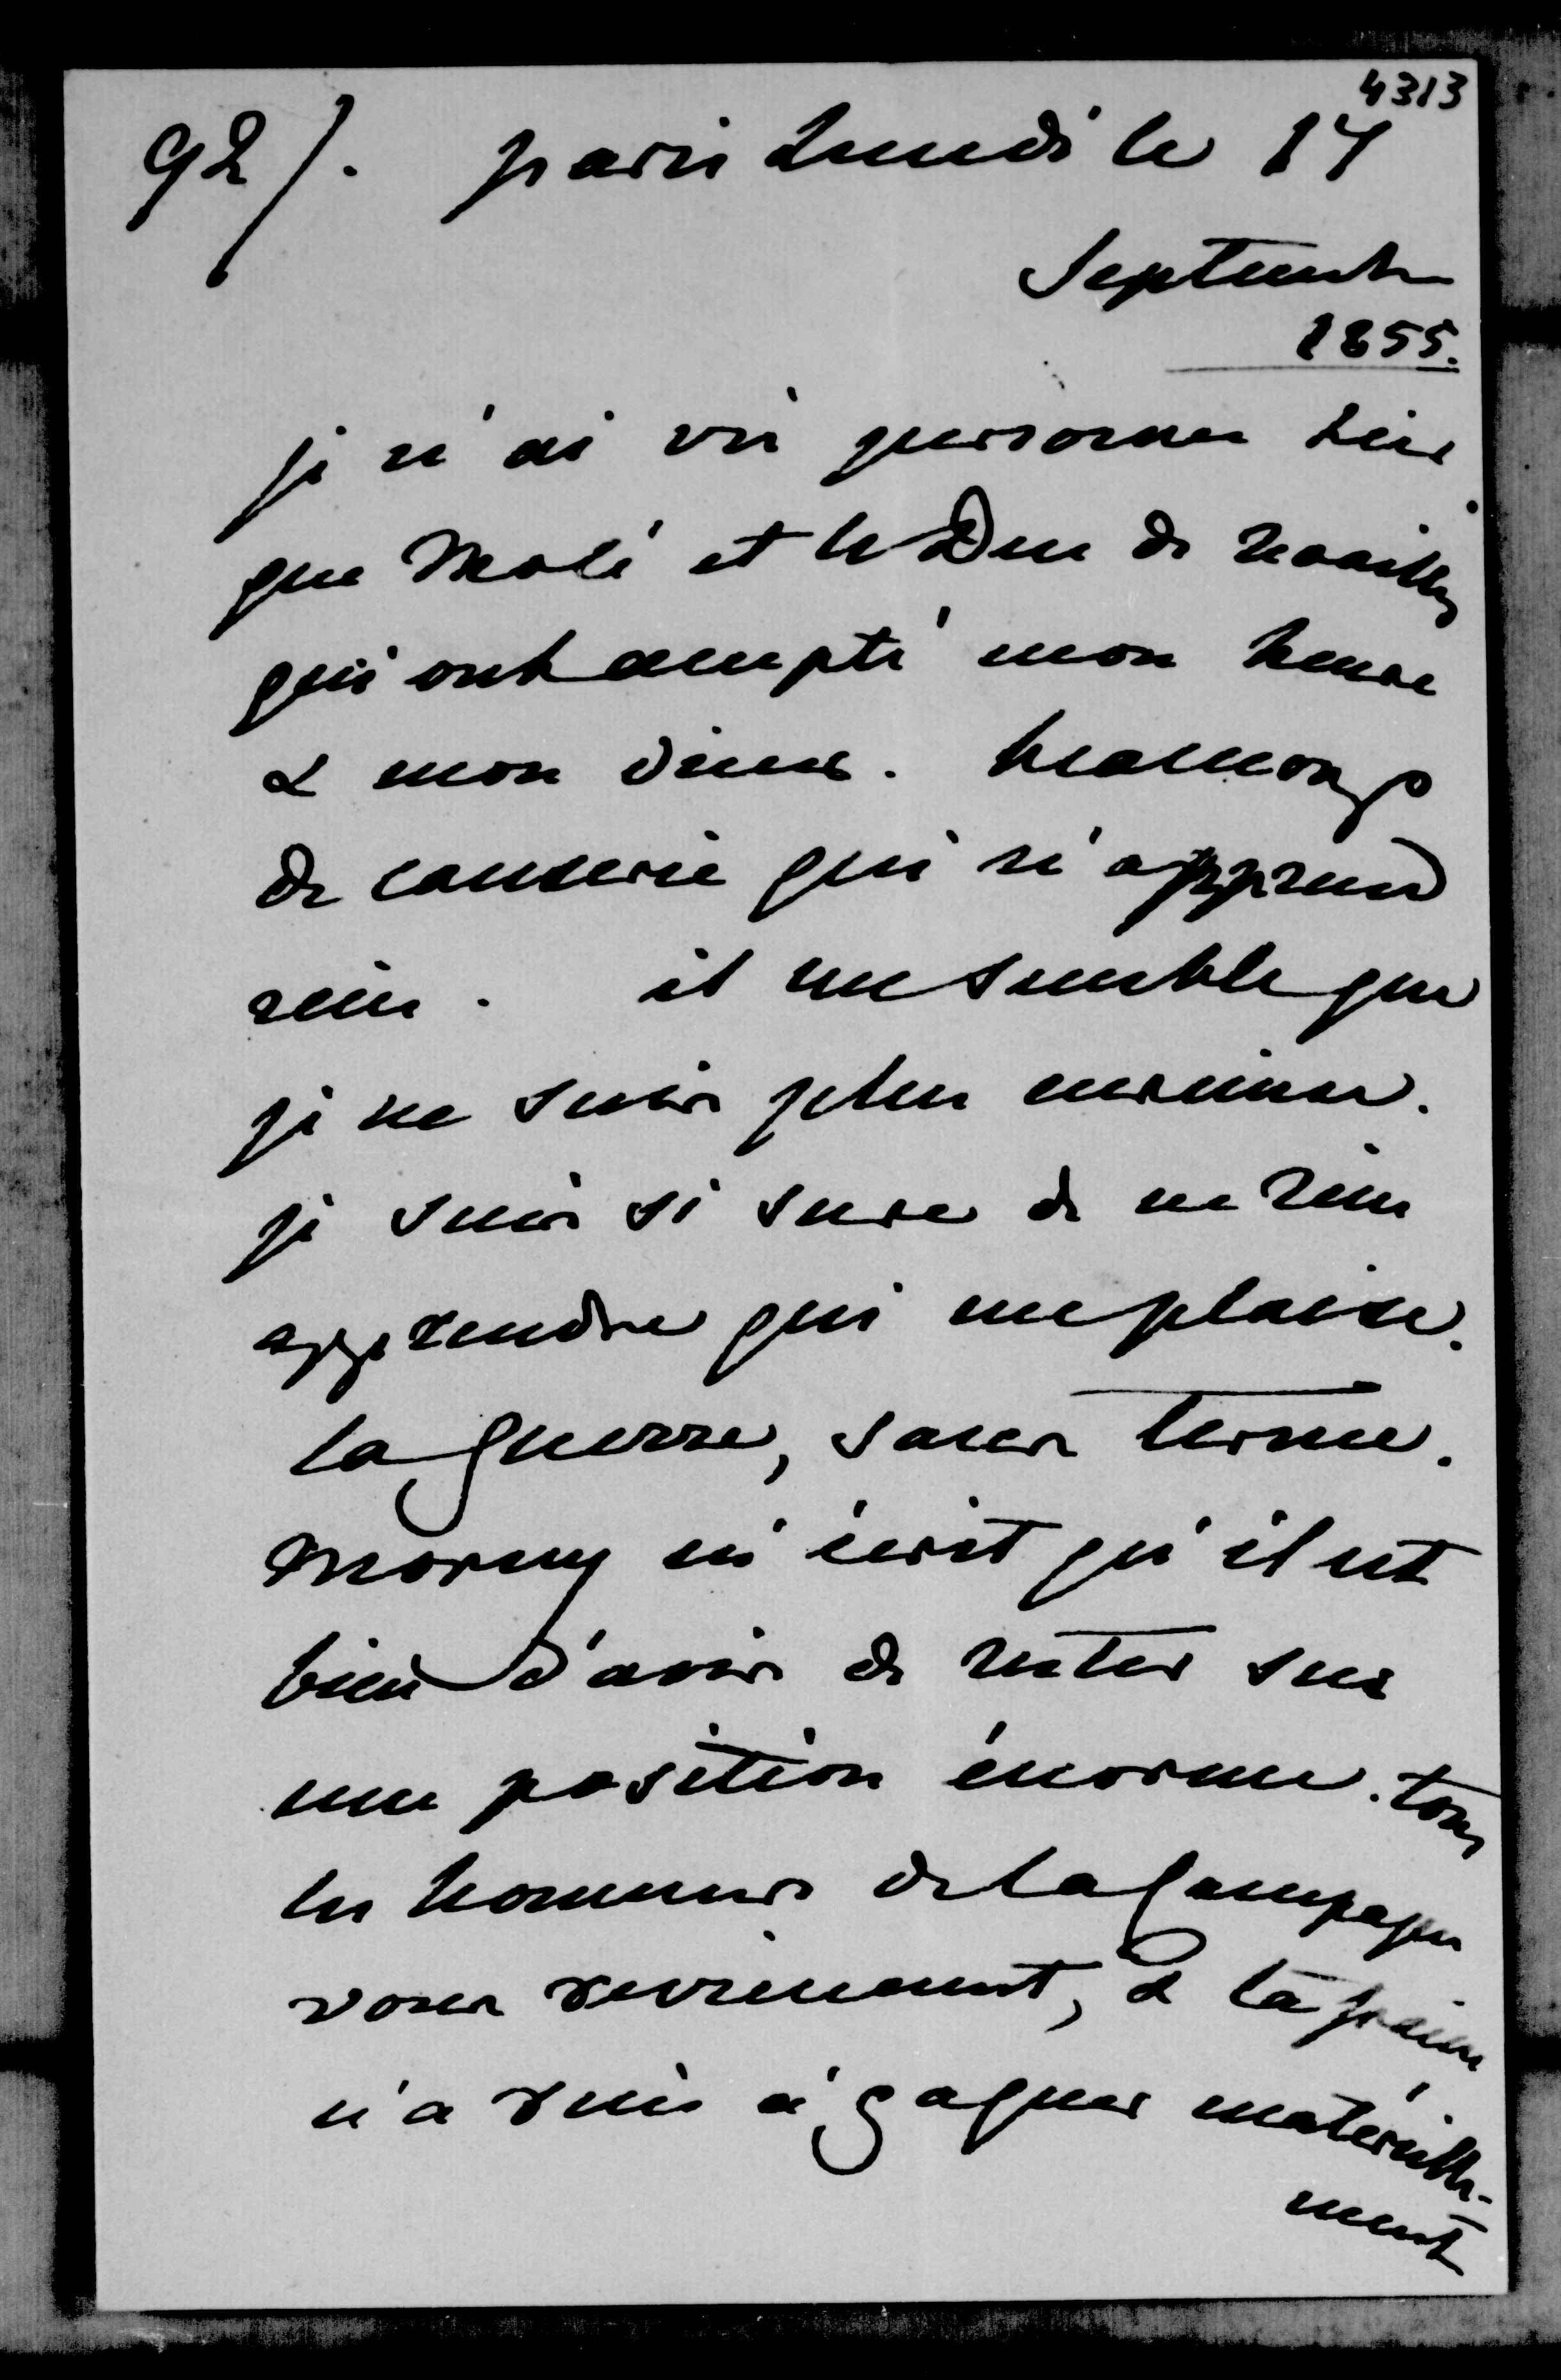 4313
92/. paris Lundi le 17
Septembre
1855.
je n'ai vu personne hier
que Molé et le Duc de Noailles
qui ont accepté mon heure
& mon diner. beaucoup
de causerie qui n'apprend
rien. il me semble que
je ne suis plus curieuse.
je suis si sure de ne rien
apprendre qui me plaise.
la guerre, sans terme.
Morny m'écrit qu'il est
bien d'avis de rester sur
une position énorme. tous
les honneurs de la Campagne
vous reviennent, & la france
n'a rien à gagner matérielle-
ment